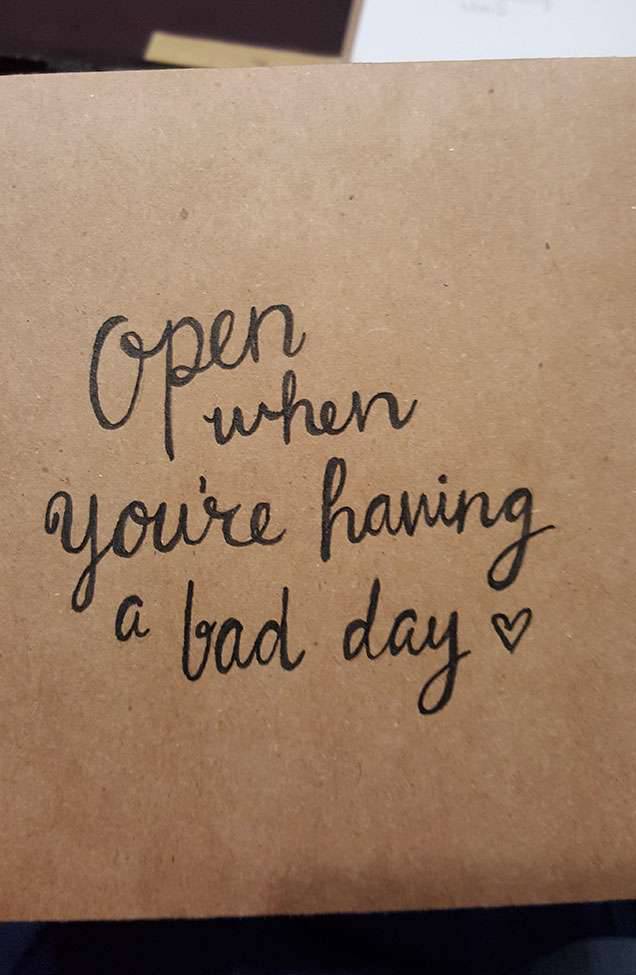 Open
when
you're having
a bad day ♡